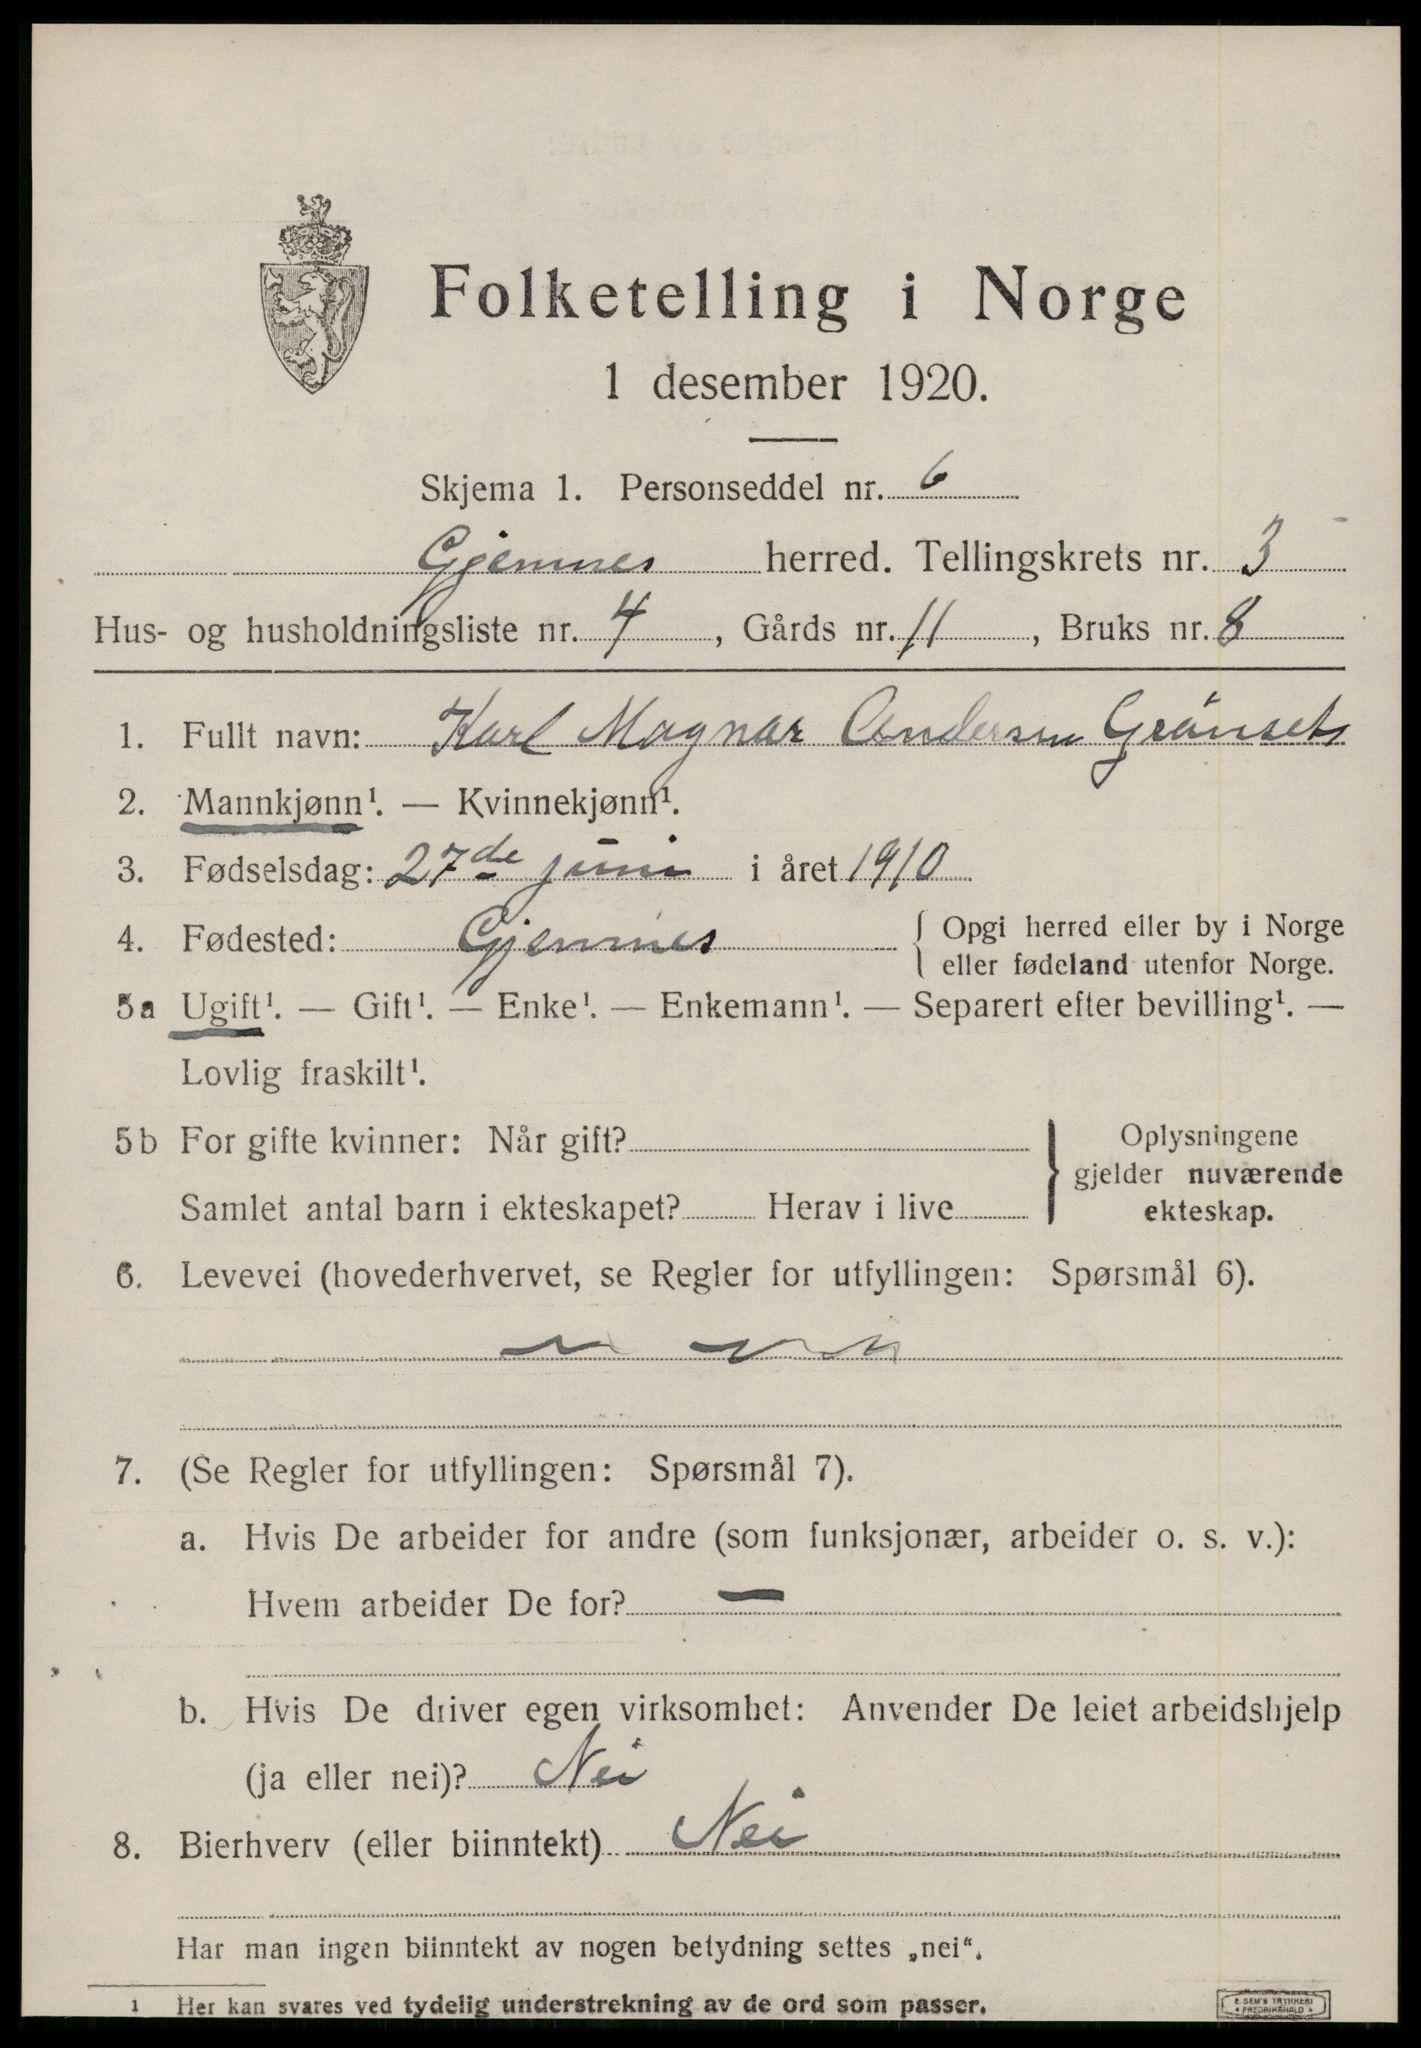 Folketelling i Norge
1 desember 1920.
Skjema 1. Personseddel nr. 6
Gjemnes herred. Tellingskrets nr. 3
Hus- og husholdningsliste nr. 4, Gårds nr. 11, Bruks nr. 8
1. Fullt navn: Karl Magnar Andersen Gränset
2. Mannkjønn¹. — Kvinnekjønn¹.
3. Fødselsdag: 27de juni i året 1910
4. Fødested: Gjemnes { Opgi herred eller by i Norge
eller fødeland utenfor Norge.
5a Ugift¹. — Gift¹. — Enke¹. — Enkemann¹. — Separert efter bevilling¹. —
Lovlig fraskilt¹.
5b For gifte kvinner: Når gift? } Oplysningene
gjelder nuværende
Samlet antal barn i ekteskapet? Herav i live
ekteskap.
6. Levevei (hovederhvervet, se Regler for utfyllingen: Spørsmål 6).
7. (Se Regler for utfyllingen: Spørsmål 7).
a. Hvis De arbeider for andre (som funksjonær, arbeider o. s. v.):
Hvem arbeider De for? —
b. Hvis De driver egen virksomhet: Anvender De leiet arbeidshjelp
(ja eller nei)? Nei
8. Bierhverv (eller biinntekt) Nei
Har man ingen biinntekt av nogen betydning settes „nei“.
1 Her kan svares ved tydelig understrekning av de ord som passer.
E. SEM'S TRYKKERI
* FREDRIKSHALD *